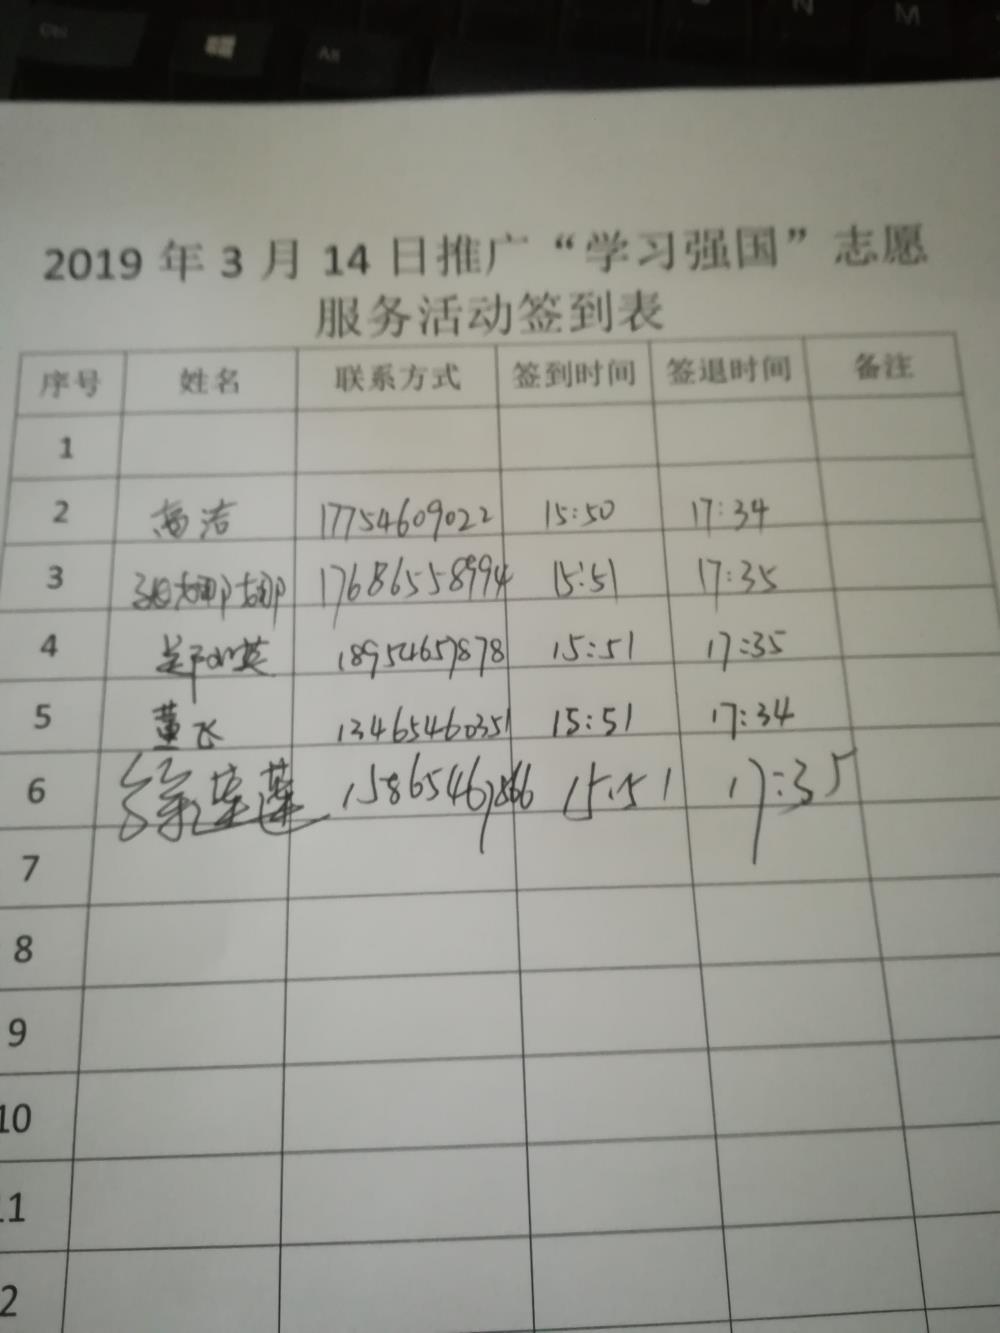 Ctrl
Alt
N
M
2019 年 3 月 14 日推广“学习强国”志愿
服务活动签到表
序号 姓名 联系方式 签到时间 签退时间 备注
1
2 高洁 17754609022 15:50 17:34
3 张娜娜 17686558994 15:51 17:35
4 18954657878 15:51 17:35
5 董飞 13465460351 15:51 17:34
6 徐莲莲 15865467866 15:51 17:35
7
8
9
10
11
2